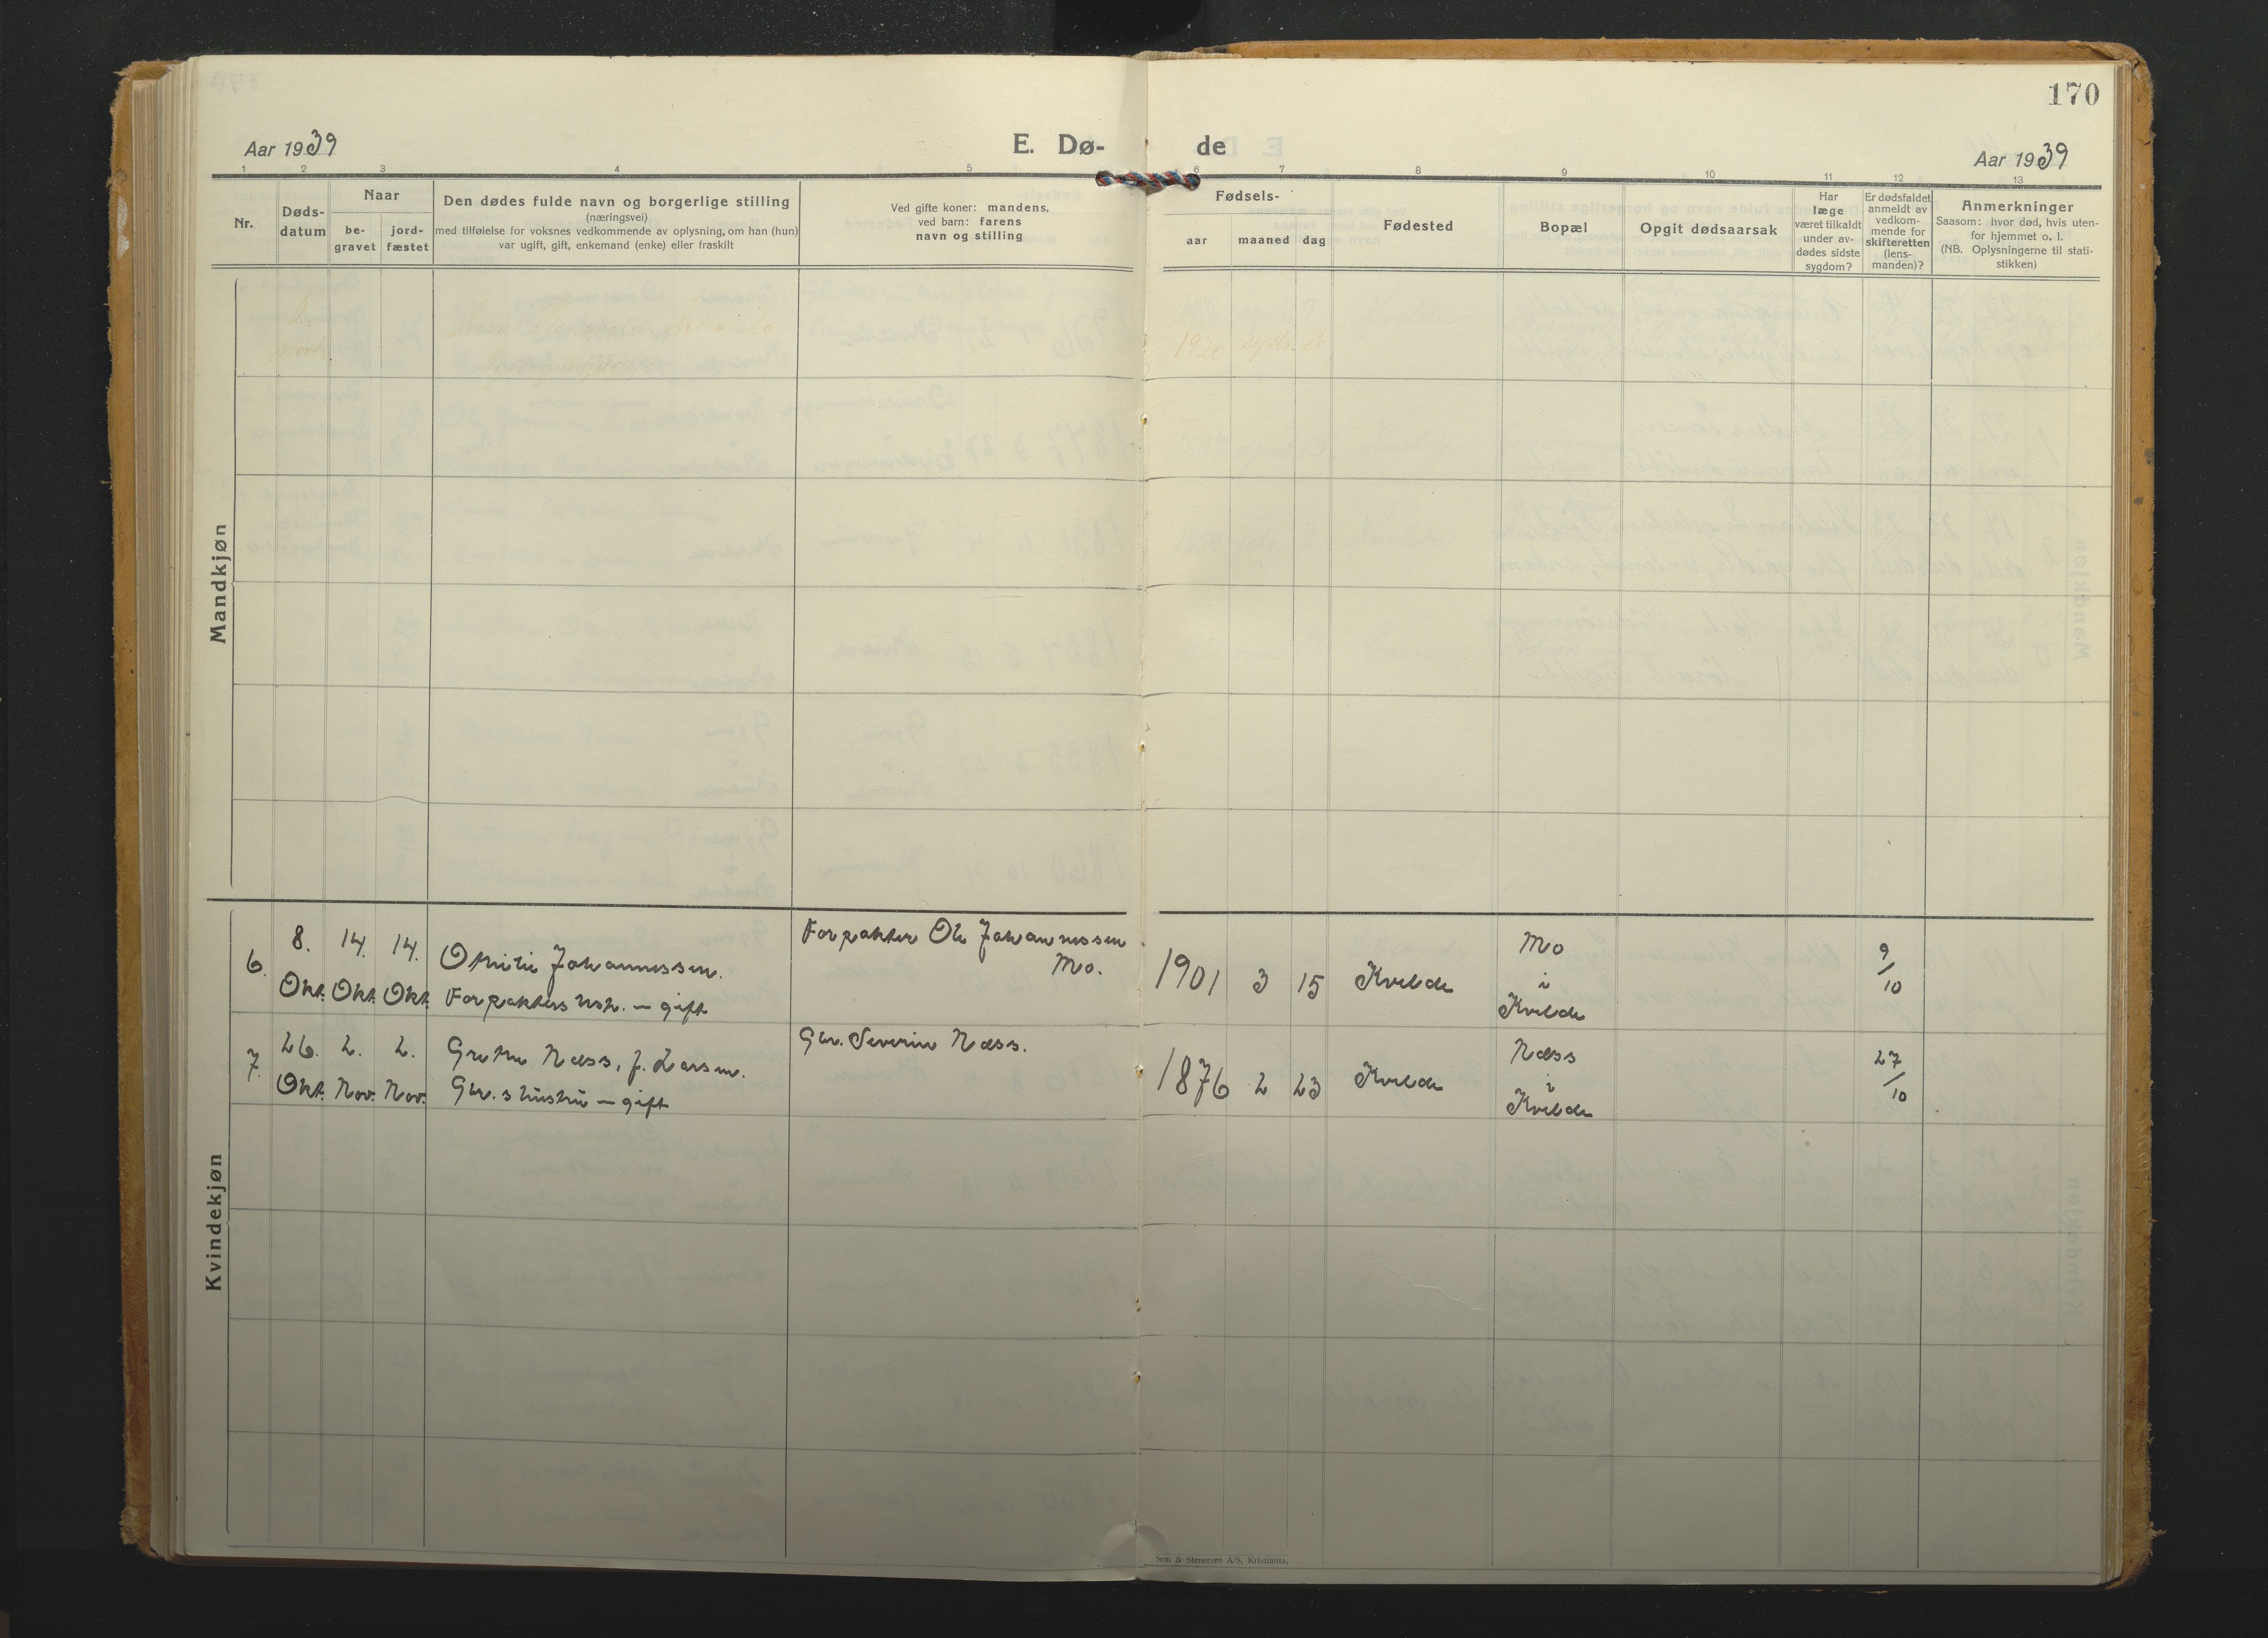 170
Aar 1939
E. Dø-
de
Aar 1939
1 2 3 4 5 6 7 8 9 10 11 12 13
Nr.
Døds-
datum
Naar
be-
gravet
jord-
fæstet
Den dødes fulde navn og borgerlige stilling
(næringsvei)
med tilføielse for voksnes vedkommende av oplysning, om han (hun)
var ugift, gift, enkemand (enke) eller fraskilt
Ved gifte koner: mandens,
ved barn: farens
navn og stilling
Fødsels-
aar
maaned
dag
Fødested
Bopæl
Opgit dødsaarsak
Har
læge
været tilkaldt
under av-
dødes sidste
sygdom?
Er dødsfaldet
anmeldt av
vedkom-
mende for
skifteretten
(lens-
manden)?
Anmerkninger
Saasom: hvor død, hvis uten-
for hjemmet o. l.
(NB. Oplysningerne til stati-
stikken)
Mandkjøn
1920 septb. 26
Kvindekjøn
6.
8.
Okt.
14.
Okt.
14.
Okt.
Johannessen.
Forpakters - gift
Forpakter Ole Johannessen
Mo.
1901 3 15 Kvelde
Mo
i
Kvelde
9/10
7.
26.
Okt.
2.
Nov.
2.
Nov.
Grethe Næss, f. Larsen.
Gbr.s hustru - gift
Gbr. Severin Næss.
1876 2 23 Kvelde
Næss
i
Kvelde
27/10
Sem & Stenersen A/S, Kristiania.